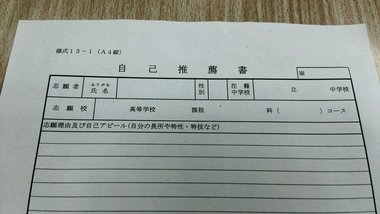 様式13-1〔A4縦〕
自己推薦書
志願者 ふりがな 氏名 性別 在籍中学校 立 中学校
志願校 高等学校 課程 科( )コース
志願理由及び自己アピール(自分の長所や特性・特技など)